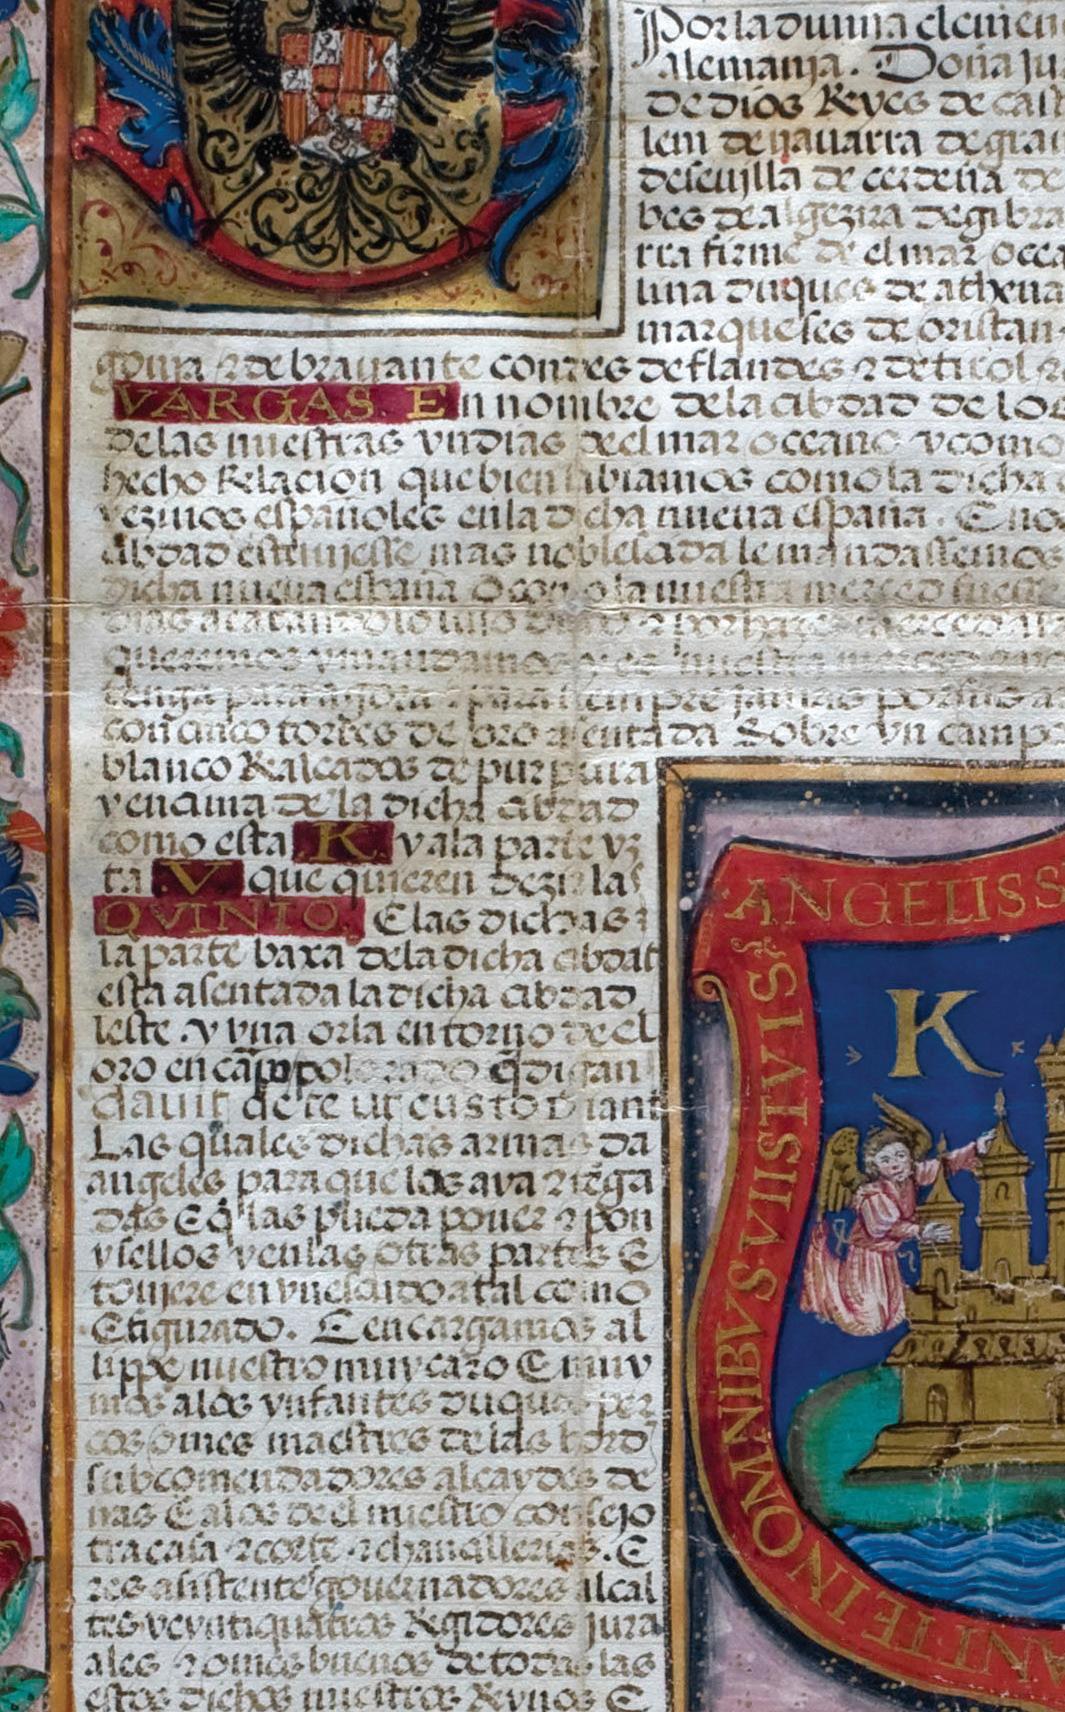 Por la divina clemen
Alemania. Doña Ju
De dios Reyes de cast
lem de navarra de gra
de sevilla de cerdeña de
bes de algezira de gibra
rra firme de el mar occea
luna duques de athena
marqueses de oristan
goria & de bravante condes de flandes & de tirol &
VARGAS. En nombre de la cibdad de los
de las nuestras yndias del mar occeano y como
hecho Relacion que bien sabiamos como la dicha
vezinos españoles en la dicha nueva españa. E nos
cibdad estuviesse mas noblecida le mandassemos
dicha nueva españa o como la nuestra merced fuesse
queremos y mandamos nuestra merced
tenga para agora & para siempre jamas por sus ar
con cinco torres de oro asentada Sobre un campo
blanco Ralcados de purpura
y encima de la dicha cibdad
como esta K y a la parte yz
ta V que quieren dezir las
QVINTO. E las dichas
la parte baxa de la dicha cibdad
esta asentada la dicha cibdad
leste. y vna orla en torno de el
oro en cãmpo colorado q̃ digan
davit de te ut custodiant
Las quales dichas armas da
angeles para que los aya & tẽga
das E q̃ las pueda poner & pon
y sellos y en las otras partes E
toviere en vn escudo a tal como
E figurado. E encargamos al
lippe nuestro muy caro E muy
mos a los ynfantes duques per
cos omes maestres de las hord
subcomendadores alcaydes de
nas E a los de el nuestro consejo
tra casa & corte & chancillerias. E
res asistente governadores alcal
tes veyntiquatros Regidores jura
ales & omes buenos de todas las
estos dichos nuestros Reynos E
K
ANGELISS
VIISTVIS
OMNIBVS
IN